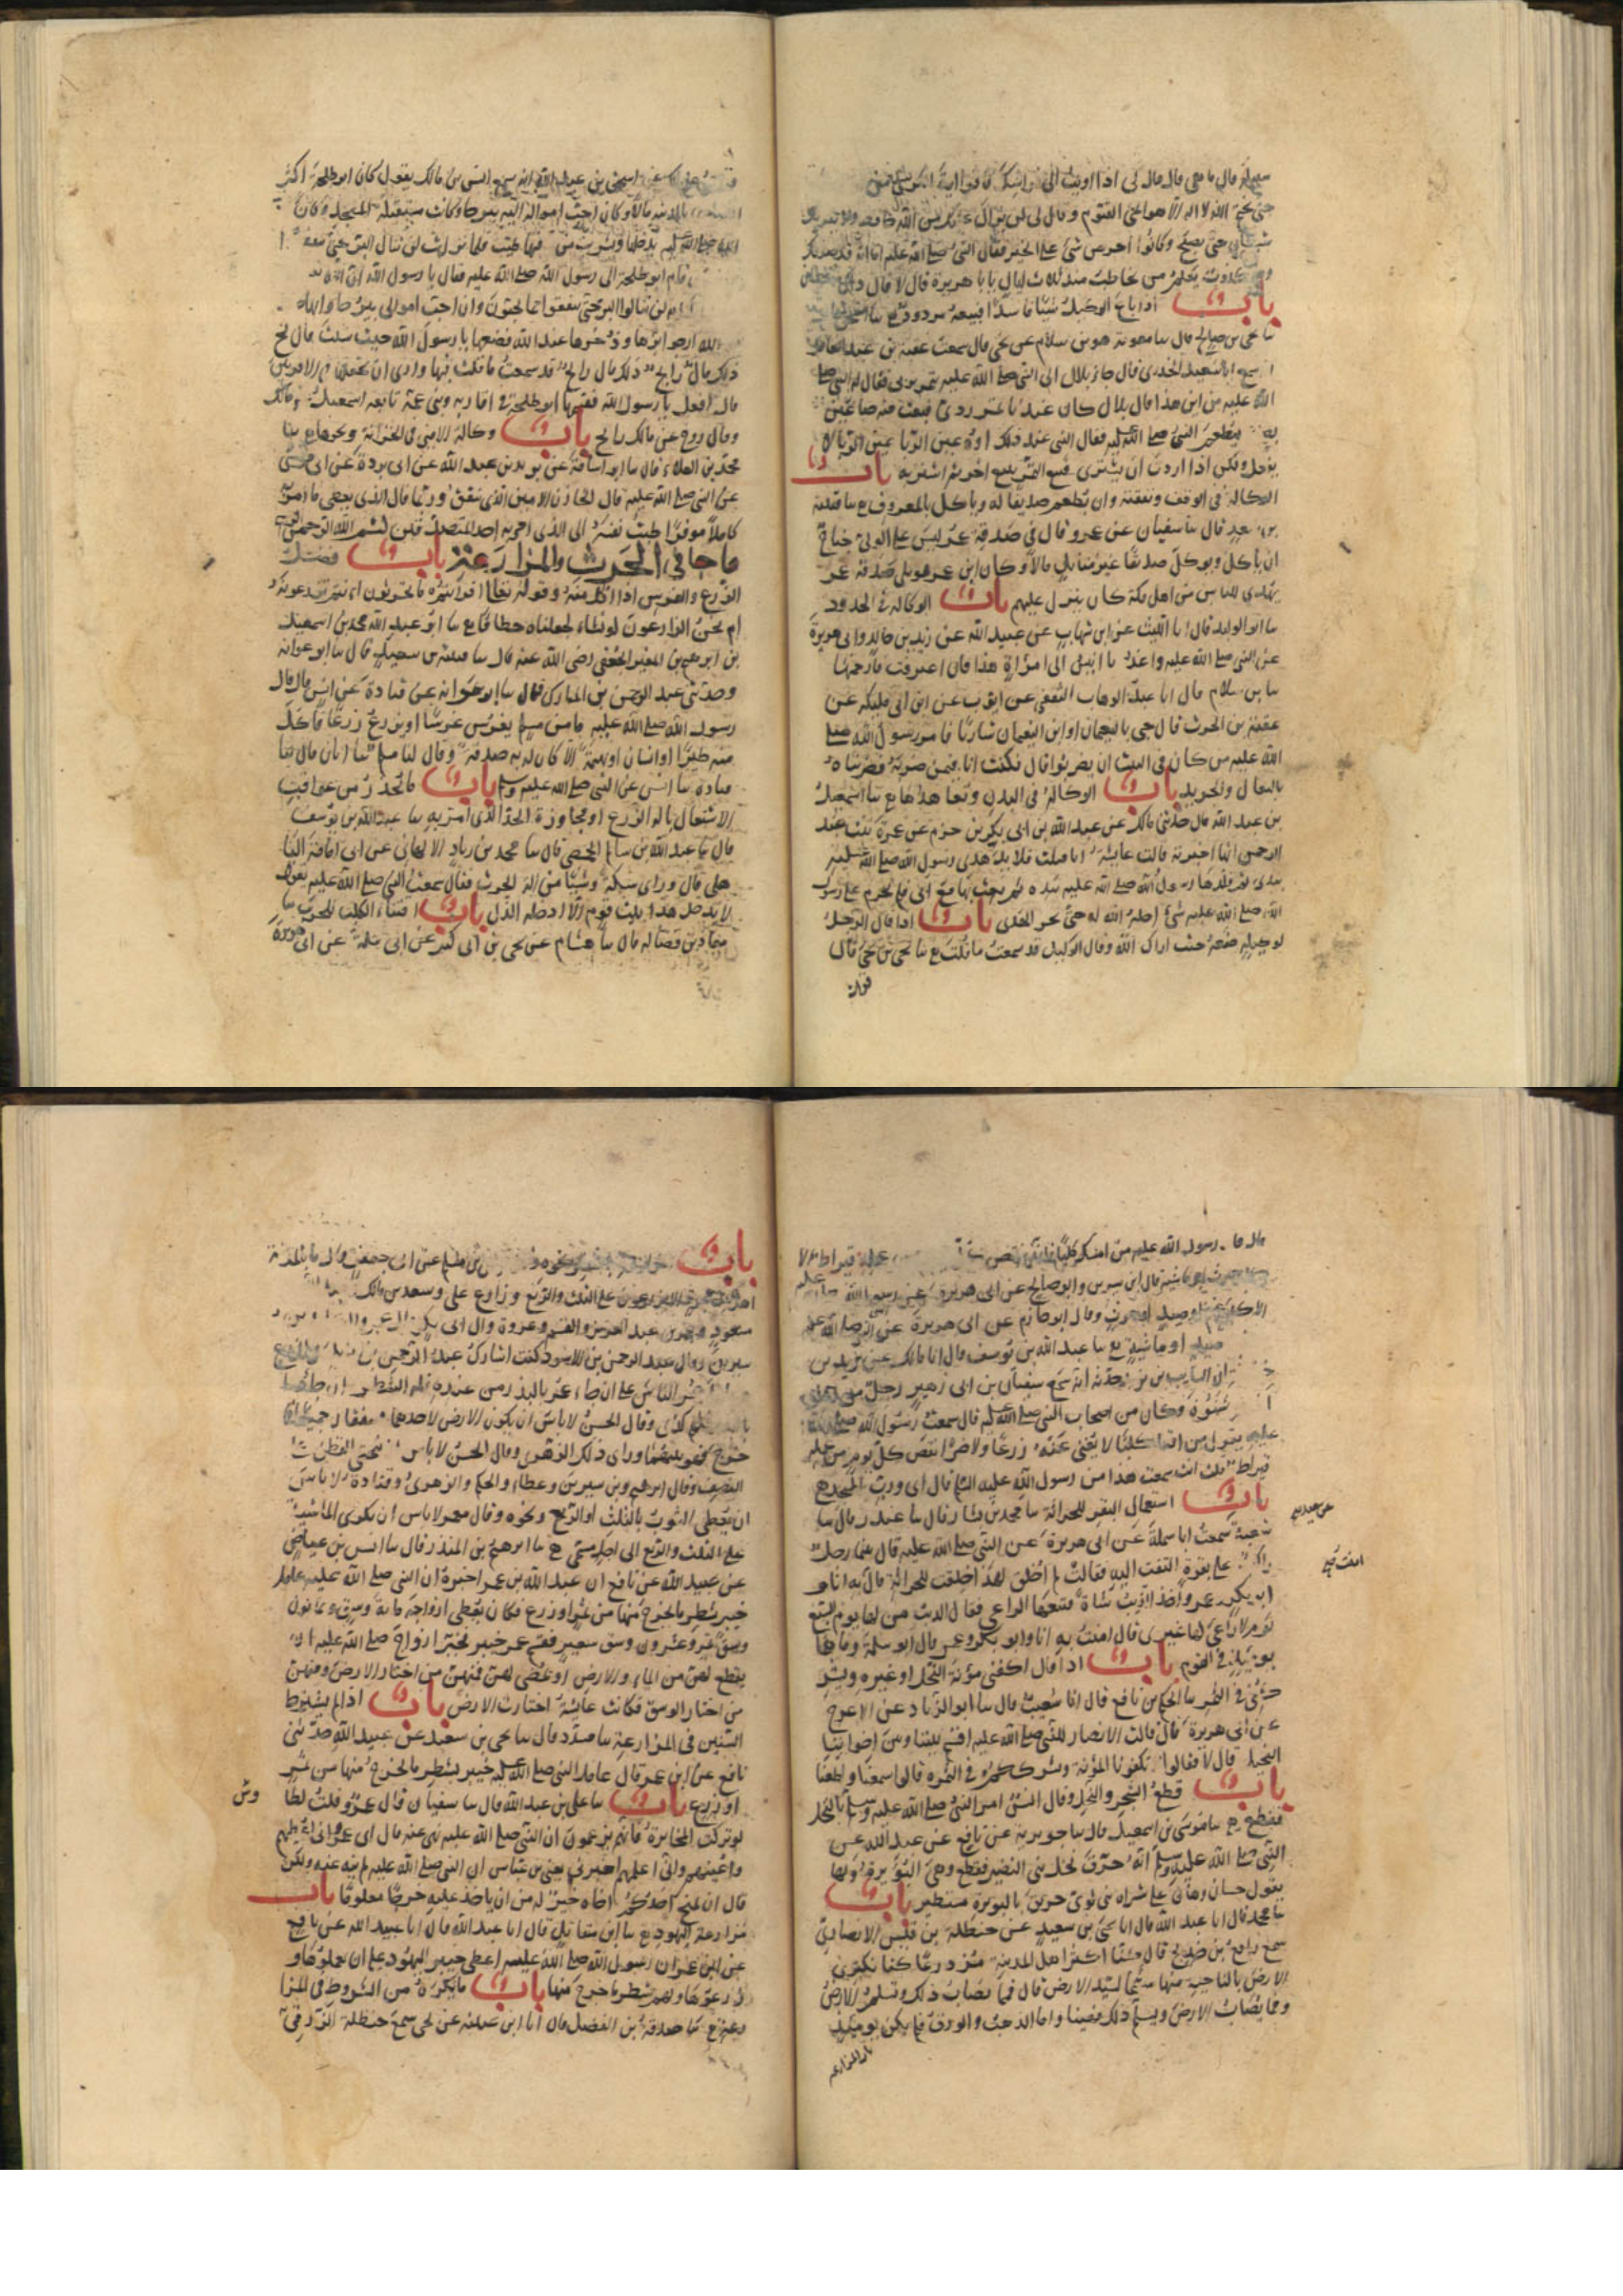 سبيله قال ما هي قال قال لي اذا اويت الى فراشك فاقرا اية الكرسي من
حتى تختم الله لا اله الا هو الحي القيوم وقال لي لن يزال عليك من الله حافظ ولا يقربك
شيطان حتى يصبح وكانوا احرص شي على الخير فقال النبي صلى الله عليه اما انه قد صدقك
وهو كذوب تعلم من تخاطب منذ ثلاث ليال يابا هريرة قال لا قال ذاك شيطان
باب اذا باع الوكيل شيئا فاسدا فبيعه مردود ع سا اسحق
سا يحيى بن صالح قال سا معوية هو بن سلام عن يحيى قال سمعت عقبة بن عبد الغافر
انه سمع ابا سعيد الخدري قال جاء بلال الى النبي صلى الله عليه بتمر برني فقال له النبي صلى
الله عليه من اين هذا قال بلال كان عندنا تمر ردي فبعت منه صاعين
ليطعم النبي صلى الله عليه فقال النبي عند ذلك اوه عين الربا عين الربا لا
تفعل ولكن اذا اردت ان تشتري فبع التمر ببيع اخر ثم اشتر به باب
الوكالة في الوقف ونفقته وان يطعم صديقا له وياكل بالمعروف ع سا قتيبة
بن سعيد قال سا سفيان عن عمرو قال في صدقة عمر ليس على الولي جناح
ان ياكل ويوكل صديقا غير متاثل مالا وكان ابن عمر هو يلي صدقة عمر
يهدي للناس من اهل مكة كان ينزل عليهم باب الوكالة في الحدود
سا ابو الوليد قال انا الليث عن ابن شهاب عن عبيد الله عن زيد بن خالد وابي هريرة
عن النبي صلى الله عليه واغد يا انيس الى امراة هذا فان اعترفت فارجمها
سا بن سلام قال انا عبد الوهاب الثقفي عن ايوب عن ابن ابي مليكة عن
عقبة بن الحرث قال جي بالنعيمان او ابن النعيمان شاربا فامر رسول الله صلى
الله عليه من كان في البيت ان يضربوا قال فكنت انا فيمن ضربه فضربناه
بالنعال والجريد باب الوكالة في البدن وتعاهدها ع سا اسمعيل
بن عبد الله قال حدثني مالك عن عبد الله بن ابي بكر بن حزم عن عمرة بنت عبد
الرحمن انها اخبرته قالت عايشة انا فتلت قلايد هدي رسول الله صلى الله عليه
بيدي ثم قلدها رسول الله صلى الله عليه بيده ثم بعث بها مع ابي فلم يحرم على رسول
الله صلى الله عليه شي احله الله له حتى نحر الهدي باب اذا قال الرجل
لوكيله ضعه حيث اراك الله وقال الوكيل قد سمعت ما قلت ع سا يحيى بن يحيى قال
قرات
عن اسحق بن عبد الله انه سمع انس بن مالك يقول كان ابو طلحة اكثر
بالمدينة مالا وكان احب امواله اليه بيرحا وكانت مستقبلة المسجد وكان
صلى الله عليه يدخلها ويشرب من فيها طيب فلما نزلت لن تنالوا البر حتى تنفقوا
قام ابو طلحة الى رسول الله صلى الله عليه فقال يا رسول الله ان الله
لن تنالوا البر حتى تنفقوا مما تحبون وان احب اموالي بيرحا وانها
لله ارجوا برها وذخرها عند الله فضعها يا رسول الله حيث شئت قال بخ
ذلك مال رابح ذلك مال رابح قد سمعت ما قلت فيها وارى ان تجعلها في الاقربين
قال افعل يا رسول الله فقسمها ابو طلحة في اقاربه وبني عمه تابعه اسمعيل عن مالك
وقال روح عن مالك رابح باب وكالة الامين في الخزانة ونحوها ع سا
محمد بن العلاء قال سا ابو اسامة عن بريد بن عبد الله عن ابي بردة عن ابي موسى
عن النبي صلى الله عليه قال الخازن الامين الذي ينفق وربما قال الذي يعطي ما امر به
كاملا موفرا طيب نفسه الى الذي امر به احد المتصدقين بسم الله الرحمن الرحيم
ما جا في الحرث والمزارعة باب فضل
الزرع والغرس اذا اكل منه وقوله تعالى افرايتم ما تحرثون اانتم تزرعونه
ام نحن الزارعون لو نشاء لجعلناه حطاما ع سا ابو عبد الله محمد بن اسمعيل
بن ابرهيم بن المغيرة الجعفي رضي الله عنه قال سا قتيبة بن سعيد قال سا ابو عوانة
وحدثني عبد الرحمن بن المبارك قال سا ابو عوانة عن قتادة عن انس قال قال
رسول الله صلى الله عليه ما من مسلم يغرس غرسا او يزرع زرعا فياكل
منه طير او انسان او بهيمة الا كان له به صدقة وقال لنا مسلم سا ابان قال سا
قتادة سا انس عن النبي صلى الله عليه وسلم باب ما يحذر من عواقب
الاشتغال بالة الزرع او مجاوزة الحد الذي امر به سا عبد الله بن يوسف
قال سا عبد الله بن سالم الحمصي قال سا محمد بن زياد الالهاني عن ابي امامة الباهلي
قال وراى سكة وشيا من الة الحرث فقال سمعت النبي صلى الله عليه يقول
لا يدخل هذا بيت قوم الا ادخله الذل باب اقتناء الكلب للحرث سا
معاذ بن فضالة قال سا هشام عن يحيى بن ابي كثير عن ابي سلمة عن ابي هريرة
قال قال رسول الله عليه من امسك كلبا فانه ينقص عمله قيراط الا
حرث او ماشية قال ابن سيرين وابو صالح عن ابي هريرة عن رسول الله صلى الله عليه
الا كلب غنم او صيد او حرث وقال ابو حازم عن ابي هريرة عن النبي صلى الله عليه
صيد او ماشية ع سا عبد الله بن يوسف قال انا مالك عن يزيد بن
ان السايب بن يزيد حدثه انه سمع سفيان بن ابي زهير رجل من ازد
شنوءة وكان من اصحاب النبي صلى الله عليه قال سمعت رسول الله صلى الله
عليه يقول من اقتنا كلبا لا يغني عنه زرعا ولا ضرعا نقص كل يوم من عمله
قيراط قلت انت سمعت هذا من رسول الله عليه السلم قال اي ورب المسجد ع
باب استعمال البقر للحراثة سا محمد بن بشار قال سا غندر قال سا
شعبة سمعت ابا سلمة عن ابي هريرة عن النبي صلى الله عليه قال بينما رجل
راكب على بقرة التفت اليه فقالت لم اخلق لهذا خلقت للحراثة قال به انا و
ابو بكر وعمر واخذ الذيب شاة فتبعها الراعي فقال الذيب من لها يوم السبع
يوم لا راعي لها غيري قال امنت به انا وابو بكر وعمر قال ابو سلمة وما هما
يوميذ في القوم باب اذا قال اكفني مؤنة النخل او غيره وتشر
كني في الثمر سا الحكم بن نافع قال انا شعيب قال سا ابو الزناد عن الاعرج
عن ابي هريرة قال قالت الانصار للنبي صلى الله عليه اقسم بيننا وبين اخواننا
النخيل قال لا فقالوا تكفونا المؤنة ونشرككم في الثمرة قالوا سمعنا واطعنا
باب قطع الشجر والنخل وقال انس امر النبي صلى الله عليه وسلم بالنخل
فقطع ع سا موسى بن اسمعيل قال سا جويرية عن نافع عن عبد الله عن
النبي صلى الله عليه وسلم انه حرق نخل بني النضير فقطع وهي البويرة ولها
يقول حسان وهان على سراة بني لوي حريق بالبويرة مستطير باب
سا محمد قال انا عبد الله قال انا يحيى بن سعيد عن حنظلة بن قيس الانصاري
سمع رافع بن خديج قال كنا اكثر اهل المدينة مزدرعا كنا نكري
الارض بالناحية منها مسمى لسيد الارض قال فمما يصاب ذلك وتسلم الارض
ومما يصاب الارض ويسلم ذلك فنهينا واما الذهب والورق فلم يكن يوميذ
باب المزارعة
باب المزارعة بالشطر ونحوه وقال قيس بن مسلم عن ابي جعفر قال ما بالمدينة
اهل بيت هجرة الا يزرعون على الثلث والربع وزارع علي وسعد بن مالك
مسعود وعمر بن عبد العزيز والقسم وعروة وال ابي بكر وال عمر وال علي وابن
سيرين وقال عبد الرحمن بن الاسود كنت اشارك عبد الرحمن بن يزيد في الزرع
وعامل عمر الناس على ان جاء عمر بالبذر من عنده فله الشطر وان جاؤا
بالبذر فلهم كذى وقال الحسن لا باس ان يكون الارض لاحدهما فينفقان جميعا فما
خرج فهو بينهما وراى ذلك الزهري وقال الحسن لا باس ان يجتنى القطن على
النصف وقال ابرهيم وبن سيرين وعطاء والحكم والزهري وقتادة لا باس
ان يعطي الثوب بالثلث او الربع ونحوه وقال معمر لا باس ان تكرى الماشية
على الثلث والربع الى اجل مسمى ع سا ابرهيم بن المنذر قال سا انس بن عياض
عن عبيد الله عن نافع ان عبد الله بن عمر اخبره ان النبي صلى الله عليه عامل
خيبر بشطر ما يخرج منها من ثمر او زرع فكان يعطي ازواجه ماية وسق ثمانون
وسق تمر وعشرون وسق شعير فقسم عمر خيبر فخير ازواج صلى الله عليه ان
يقطع لهن من الماء والارض او يمضي لهن فمنهن من اختار الارض ومنهن
من اختار الوسق فكانت عايشة اختارت الارض باب اذا لم يشترط
السنين في المزارعة سا مسدد قال سا يحيى بن سعيد عن عبيد الله حدثني
نافع عن ابن عمر قال عامل النبي صلى الله عليه خيبر بشطر ما يخرج منها من ثمر
او زرع باب سا علي بن عبد الله قال سا سفيان قال عمرو قلت لطا
وس
لو تركت المخابرة فانهم يزعمون ان النبي صلى الله عليه نهى عنه قال اي عمرو اني اعطيهم
واغنيهم وان اعلمهم اخبرني يعني بن عباس ان النبي صلى الله عليه لم ينه عنه ولكن
قال ان يمنح احدكم اخاه خير له من ان ياخذ عليه خرجا معلوما باب
مزارعة اليهود ع سا ابن مقاتل قال انا عبد الله قال انا عبيد الله عن نافع
عن ابن عمر ان رسول الله صلى الله عليه اعطى خيبر اليهود على ان يعملوها و
يزرعوها ولهم شطر ما خرج منها باب ما يكره من الشروط في المزا
رعة ع سا صدقة بن الفضل قال انا ابن عيينة عن يحيى سمع حنظلة الزرقي